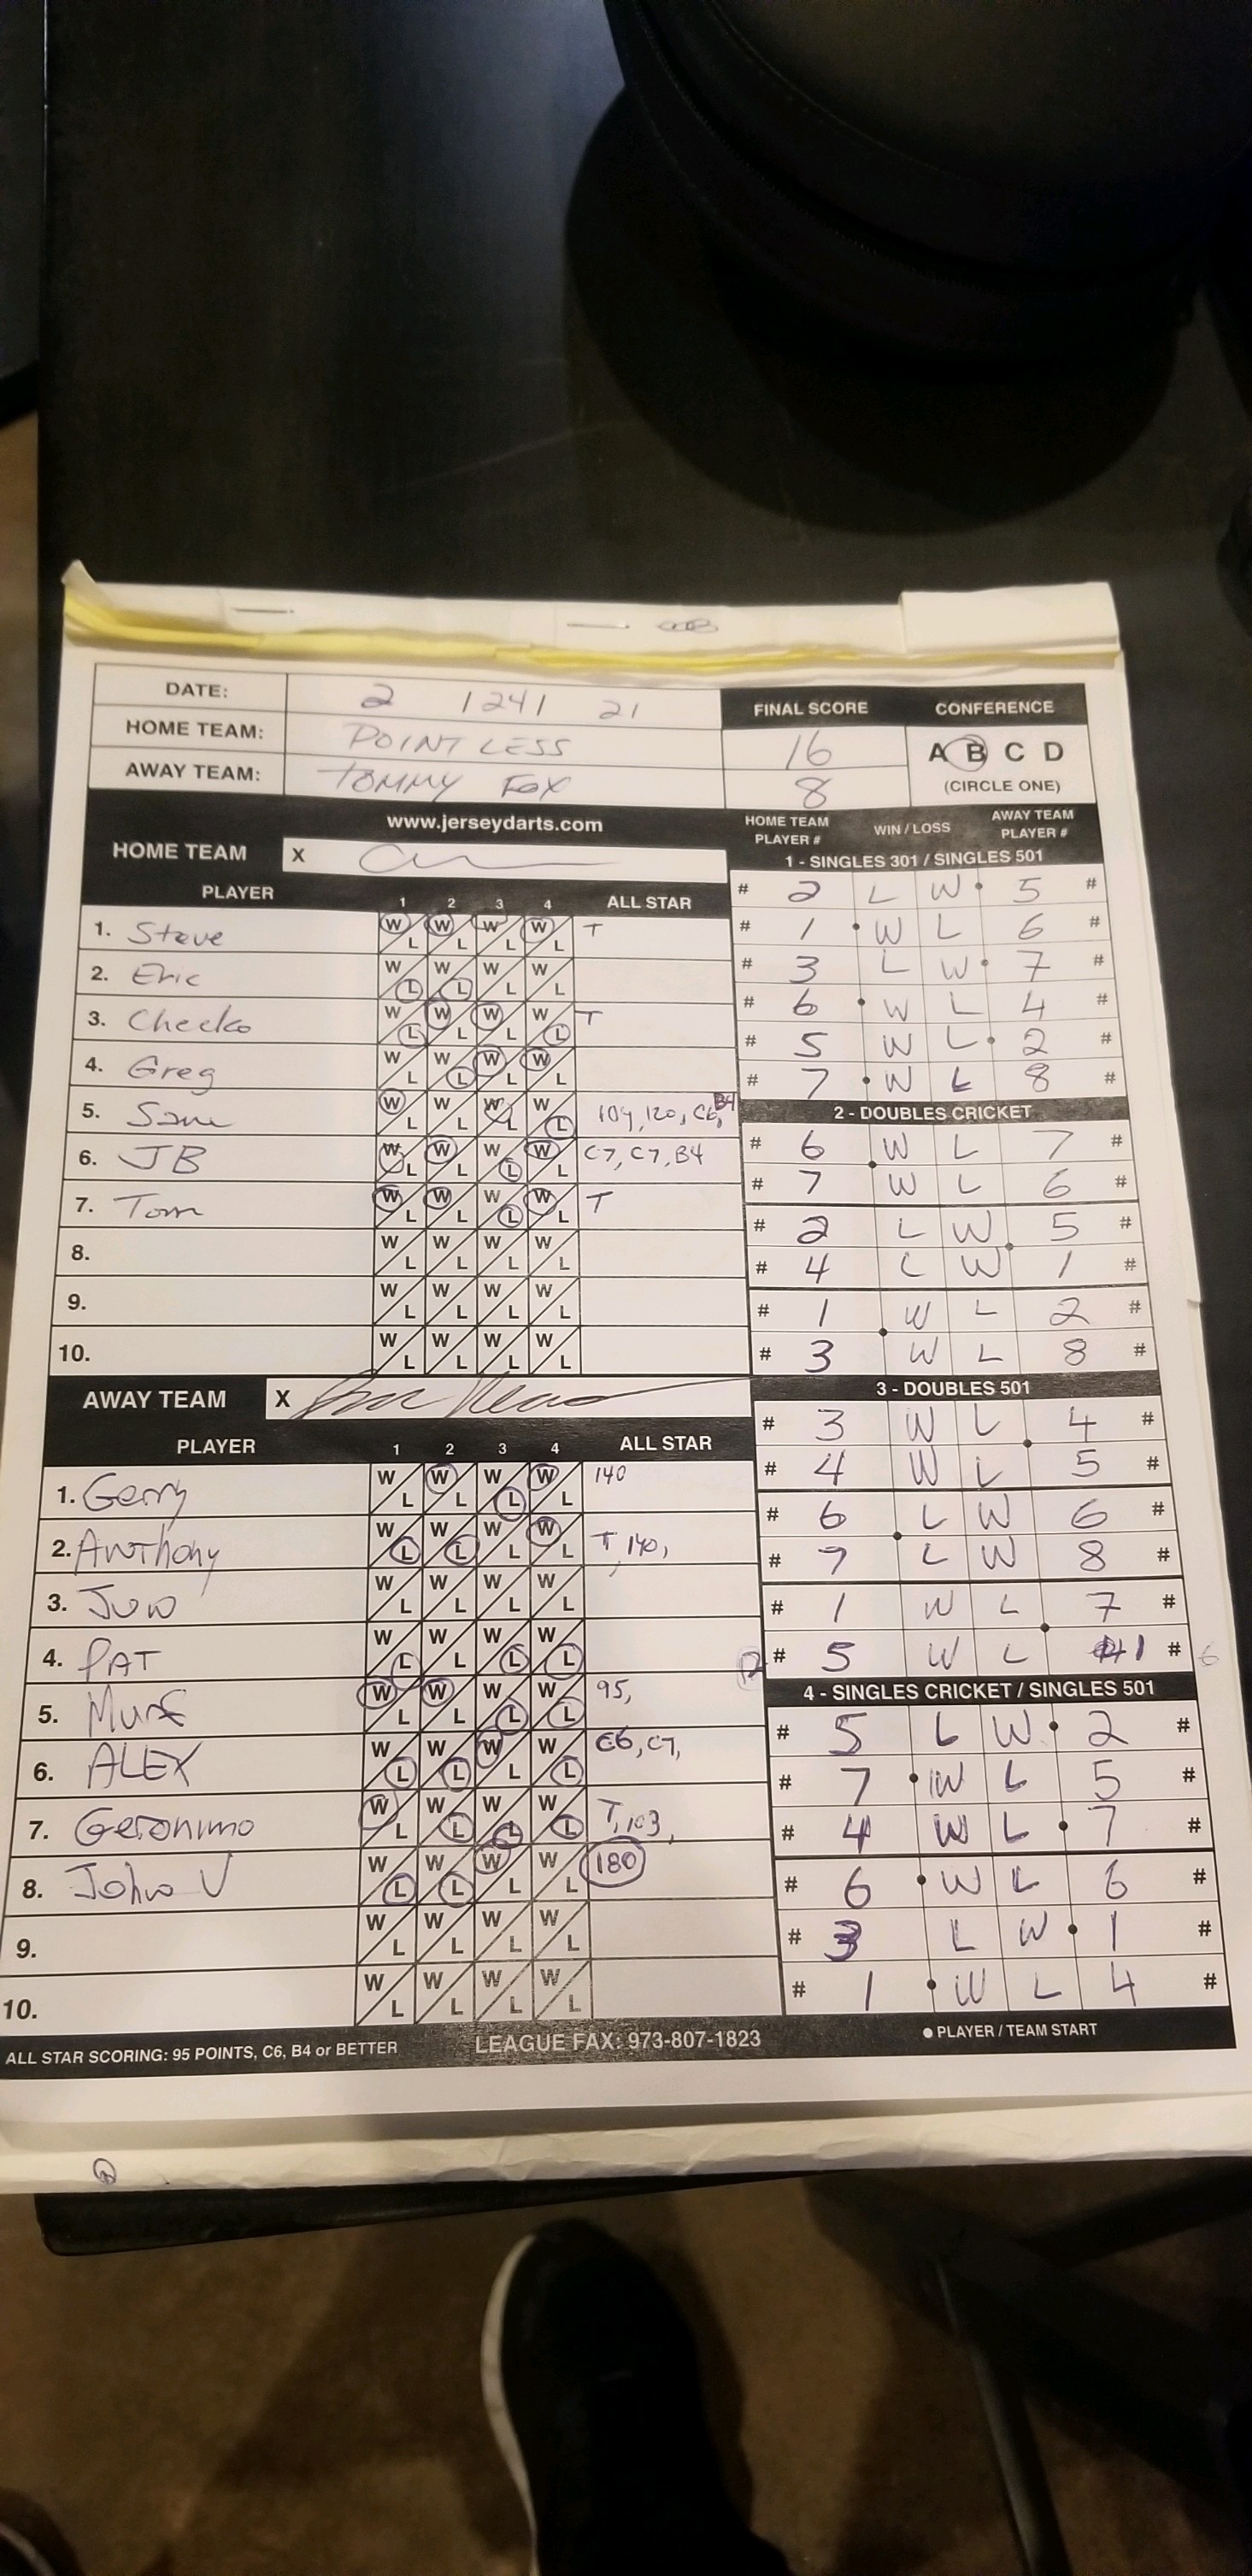 DATE: 2 / 24 / 21
HOME TEAM: POINTLESS
AWAY TEAM: TOMMY FOX
FINAL SCORE
16
8
CONFERENCE
A B C D
(CIRCLE ONE)
www.jerseydarts.com
HOME TEAM X
PLAYER 1 2 3 4 ALL STAR
1. Steve W L W L W L W L T
2. Eric W L W L W L W L
3. Cheeko W L W L W L W L T
4. Greg W L W L W L W L
5. W L W L W L W L 104, 120, C6, B4
6. JB W L W L W L W L C7, C7, B4
7. Tom W L W L W L W L T
8. W L W L W L W L
9. W L W L W L W L
10. W L W L W L W L
AWAY TEAM X
PLAYER 1 2 3 4 ALL STAR
1. Gerry W L W L W L W L 140
2. ANTHONY W L W L W L W L T, 140,
3. W L W L W L W L
4. PAT W L W L W L W L
5. W L W L W L W L 95,
6. ALEX W L W L W L W L C6, C7,
7. Geronimo W L W L W L W L T, 103,
8. John V W L W L W L W L 180
9. W L W L W L W L
10. W L W L W L W L
HOME TEAM PLAYER # WIN / LOSS AWAY TEAM PLAYER #
1 - SINGLES 301 / SINGLES 501
# 2 L W 5 #
# 1 W L 6 #
# 3 L W 7 #
# 6 W L 4 #
# 5 W L 2 #
# 7 W L 8 #
2 - DOUBLES CRICKET
# 6 W L 7 #
# 7 W L 6 #
# 2 L W 5 #
# 4 L W 1 #
# 1 W L 2 #
# 3 W L 8 #
3 - DOUBLES 501
# 3 W L 4 #
# 4 W L 5 #
# 6 L W 6 #
# 7 L W 8 #
# 1 W L 7 #
# 5 W L 1 # 6
4 - SINGLES CRICKET / SINGLES 501
# 5 L W 2 #
# 7 W L 5 #
# 4 W L 7 #
# 6 W L 6 #
# 3 L W 1 #
# 1 W L 4 #
ALL STAR SCORING: 95 POINTS, C6, B4 or BETTER
LEAGUE FAX: 973-807-1823
PLAYER / TEAM START